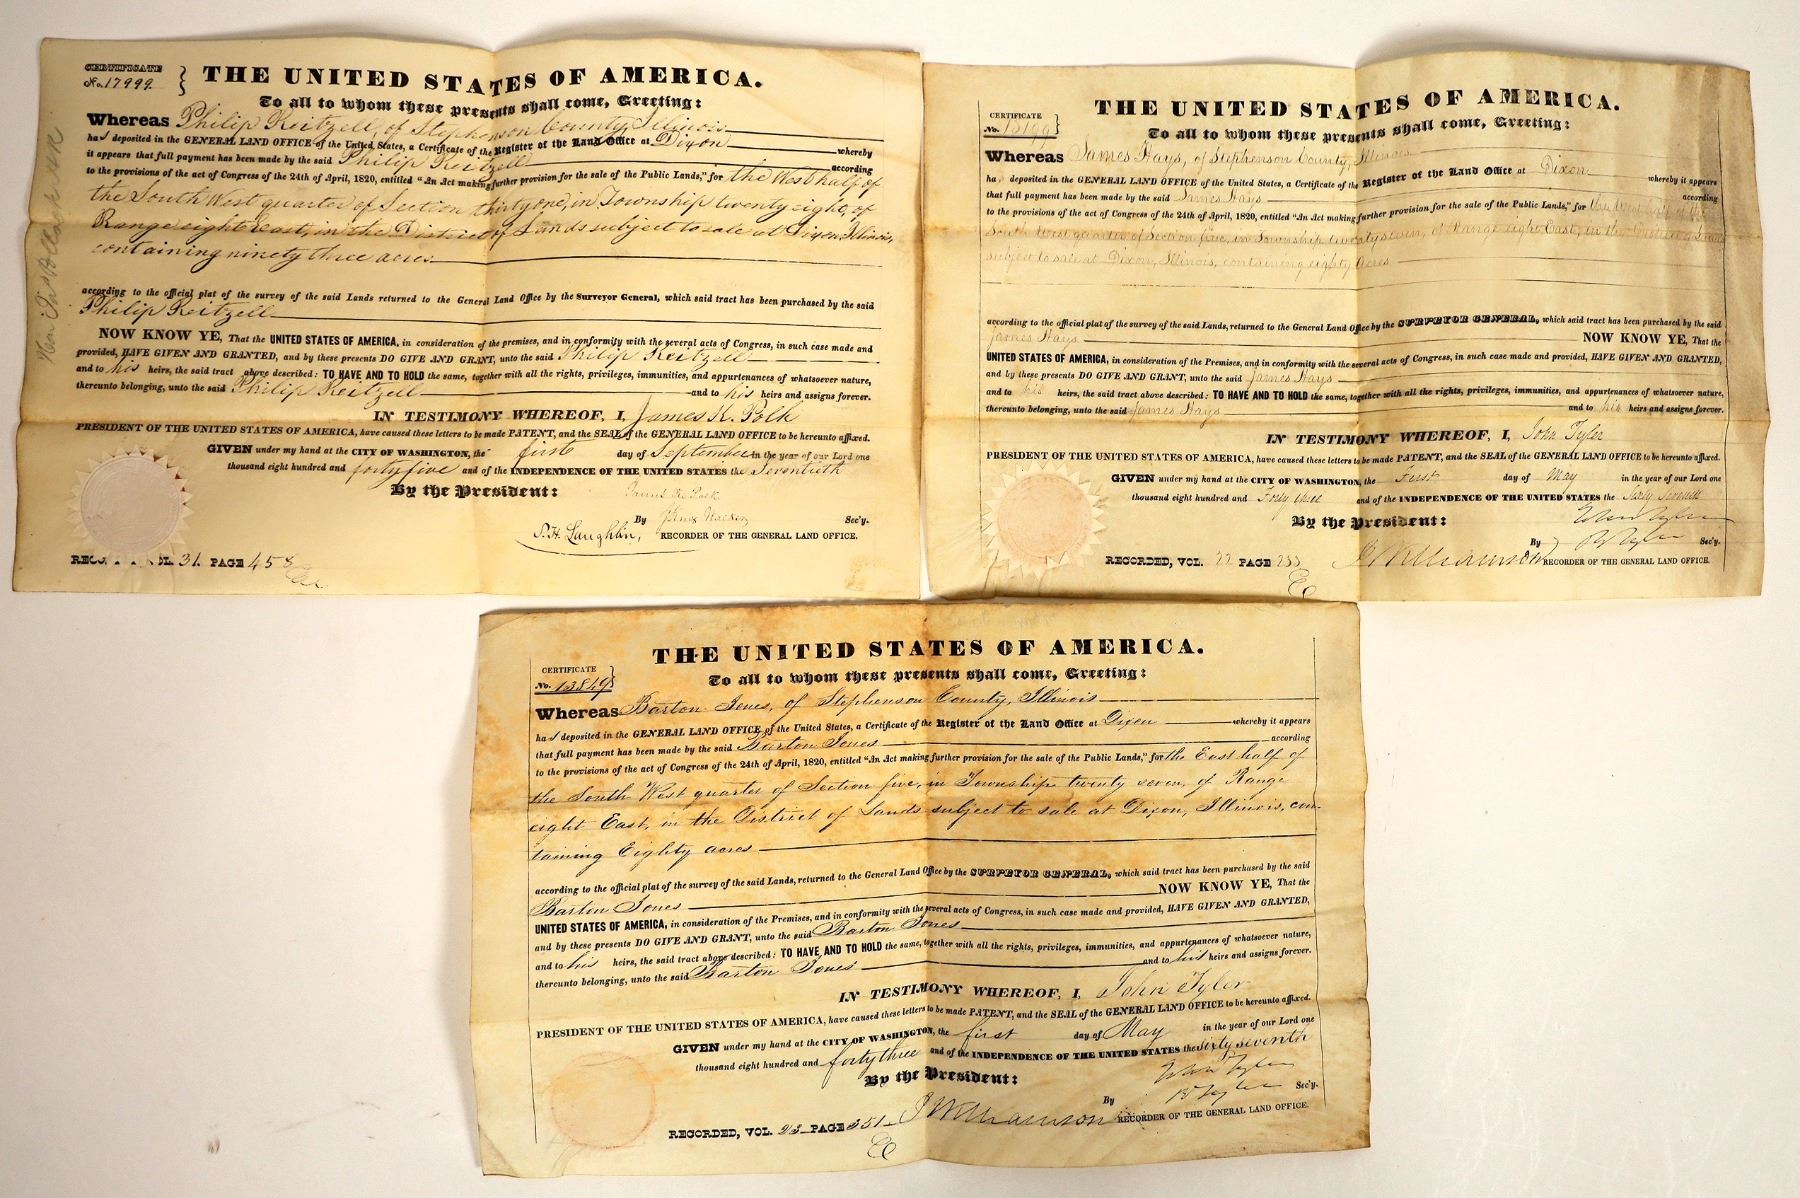 CERTIFICATE
No. 17999
THE UNITED STATES OF AMERICA.
To all to whom these presents shall come, Greeting:
Whereas Philip Reitzell, of Stephenson County, Illinois
has deposited in the GENERAL LAND OFFICE of the United States, a Certificate of the Register of the Land Office at Dixon whereby
it appears that full payment has been made by the said Philip Reitzell according
to the provisions of the act of Congress of the 24th of April, 1820, entitled "An Act making further provision for the sale of the Public Lands," for the West half of
the South West quarter of Section thirty one, in Township twenty eight, of
Range eight East, in the District of Lands subject to sale at Dixon, Illinois,
containing ninety three acres
according to the official plat of the survey of the said Lands returned to the General Land Office by the Surveyor General, which said tract has been purchased by the said
Philip Reitzell
NOW KNOW YE, That the UNITED STATES OF AMERICA, in consideration of the premises, and in conformity with the several acts of Congress, in such case made and
provided, HAVE GIVEN AND GRANTED, and by these presents DO GIVE AND GRANT, unto the said Philip Reitzell
and to his heirs, the said tract above described: TO HAVE AND TO HOLD the same, together with all the rights, privileges, immunities, and appurtenances of whatsoever nature,
thereunto belonging, unto the said Philip Reitzell and to his heirs and assigns forever.
IN TESTIMONY WHEREOF, I, James K. Polk
PRESIDENT OF THE UNITED STATES OF AMERICA, have caused these letters to be made PATENT, and the SEAL of the GENERAL LAND OFFICE to be hereunto affixed.
GIVEN under my hand at the CITY OF WASHINGTON, the first day of September in the year of our Lord one
thousand eight hundred and forty five and of the INDEPENDENCE OF THE UNITED STATES the Seventieth
By the President: James K. Polk
By Sec'y.
S. H. Laughlin, RECORDER OF THE GENERAL LAND OFFICE.
VOL. 31. PAGE 458
CERTIFICATE
No. 13199
THE UNITED STATES OF AMERICA.
To all to whom these presents shall come, Greeting:
Whereas James Hays, of Stephenson County, Illinois
ha deposited in the GENERAL LAND OFFICE of the United States, a Certificate of the Register of the Land Office at Dixon whereby it appears
that full payment has been made by the said James Hays according
to the provisions of the act of Congress of the 24th of April, 1820, entitled "An Act making further provision for the sale of the Public Lands," for the West half of the
South West quarter of Section five, in Township twenty seven, of Range eight East, in the District of Lands
subject to sale at Dixon, Illinois, containing eighty acres
according to the official plat of the survey of the said Lands, returned to the General Land Office by the SURVEYOR GENERAL, which said tract has been purchased by the said
James Hays NOW KNOW YE, That the
UNITED STATES OF AMERICA, in consideration of the Premises, and in conformity with the several acts of Congress, in such case made and provided, HAVE GIVEN AND GRANTED,
and by these presents DO GIVE AND GRANT, unto the said James Hays
and to his heirs, the said tract above described: TO HAVE AND TO HOLD the same, together with all the rights, privileges, immunities, and appurtenances of whatsoever nature,
thereunto belonging, unto the said James Hays and to his heirs and assigns forever.
IN TESTIMONY WHEREOF, I, John Tyler
PRESIDENT OF THE UNITED STATES OF AMERICA, have caused these letters to be made PATENT, and the SEAL of the GENERAL LAND OFFICE to be hereunto affixed.
GIVEN under my hand at the CITY OF WASHINGTON, the First day of May in the year of our Lord one
thousand eight hundred and Forty three and of the INDEPENDENCE OF THE UNITED STATES the Sixty Seventh
By the President: John Tyler
By R Tyler Sec'y.
J Williamson RECORDER OF THE GENERAL LAND OFFICE.
RECORDED, VOL. 22 PAGE 233
CERTIFICATE
No. 13849
THE UNITED STATES OF AMERICA.
To all to whom these presents shall come, Greeting:
Whereas Barton Jones, of Stephenson County, Illinois
has deposited in the GENERAL LAND OFFICE of the United States, a Certificate of the Register of the Land Office at Dixon whereby it appears
that full payment has been made by the said Barton Jones according
to the provisions of the act of Congress of the 24th of April, 1820, entitled "An Act making further provision for the sale of the Public Lands," for the East half of
the South West quarter of Section five, in Township twenty seven, of Range
eight East, in the District of Lands subject to sale at Dixon, Illinois, con-
taining Eighty acres
according to the official plat of the survey of the said Lands, returned to the General Land Office by the SURVEYOR GENERAL, which said tract has been purchased by the said
Barton Jones NOW KNOW YE, That the
UNITED STATES OF AMERICA, in consideration of the Premises, and in conformity with the several acts of Congress, in such case made and provided, HAVE GIVEN AND GRANTED,
and by these presents DO GIVE AND GRANT, unto the said Barton Jones
and to his heirs, the said tract above described: TO HAVE AND TO HOLD the same, together with all the rights, privileges, immunities, and appurtenances of whatsoever nature,
thereunto belonging, unto the said Barton Jones and to his heirs and assigns forever.
IN TESTIMONY WHEREOF, I, John Tyler
PRESIDENT OF THE UNITED STATES OF AMERICA, have caused these letters to be made PATENT, and the SEAL of the GENERAL LAND OFFICE to be hereunto affixed.
GIVEN under my hand at the CITY OF WASHINGTON, the first day of May in the year of our Lord one
thousand eight hundred and forty three and of the INDEPENDENCE OF THE UNITED STATES the sixty seventh
By the President: John Tyler
By R Tyler Sec'y.
J Williamson RECORDER OF THE GENERAL LAND OFFICE.
RECORDED, VOL. 23 PAGE 351